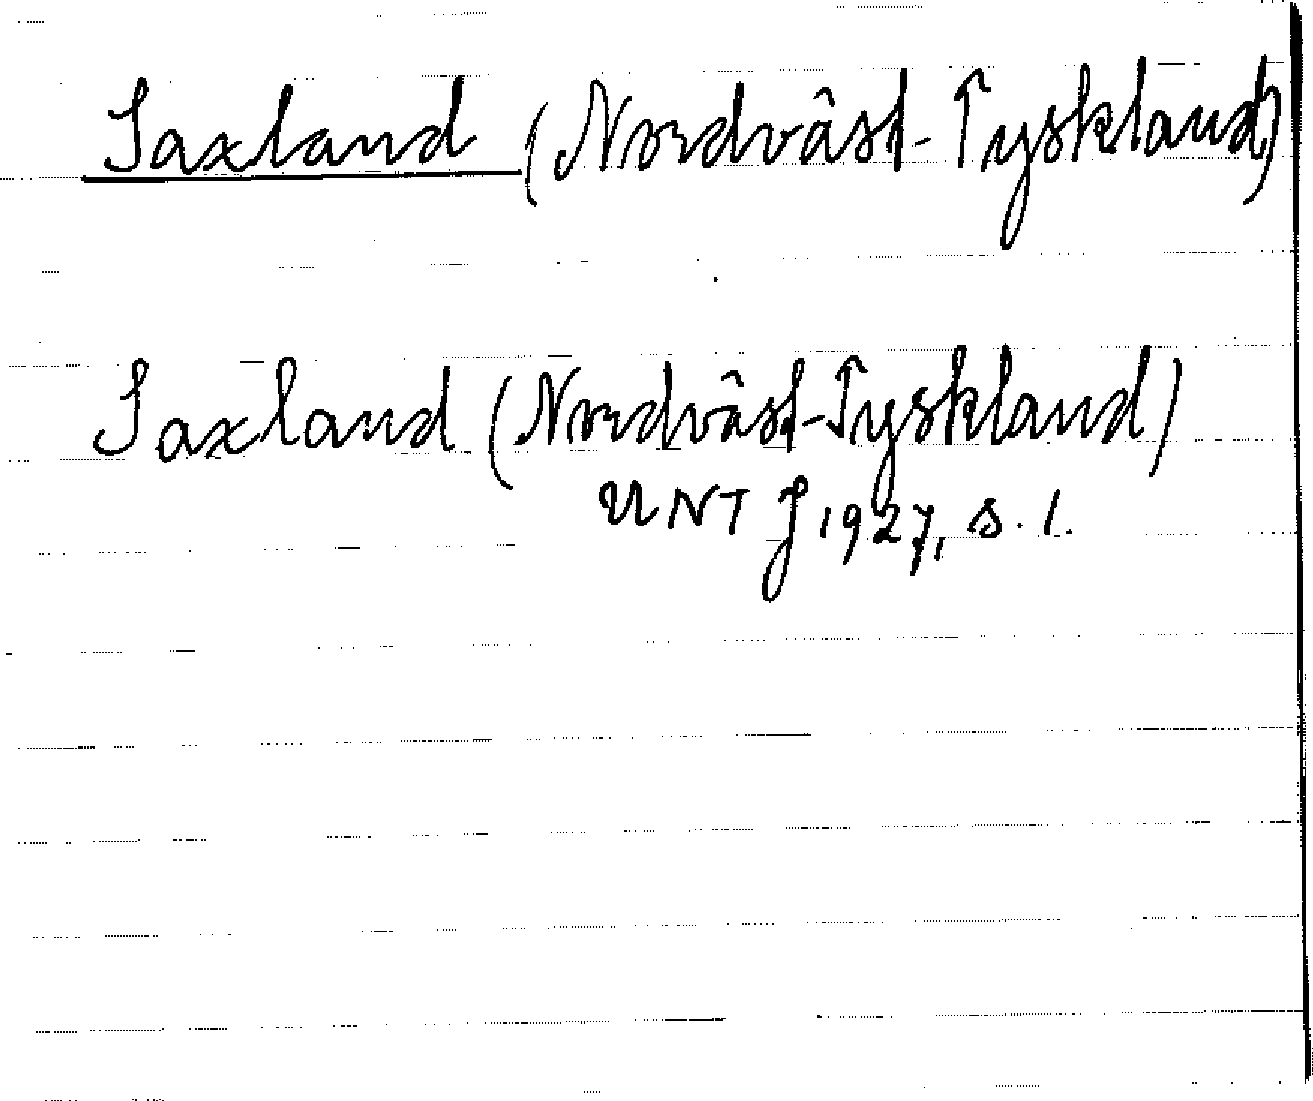 Saxland (Nordväst-Tyskland)
Saxland (Nordväst-Tyskland)
UNT J 1927, s. 1.